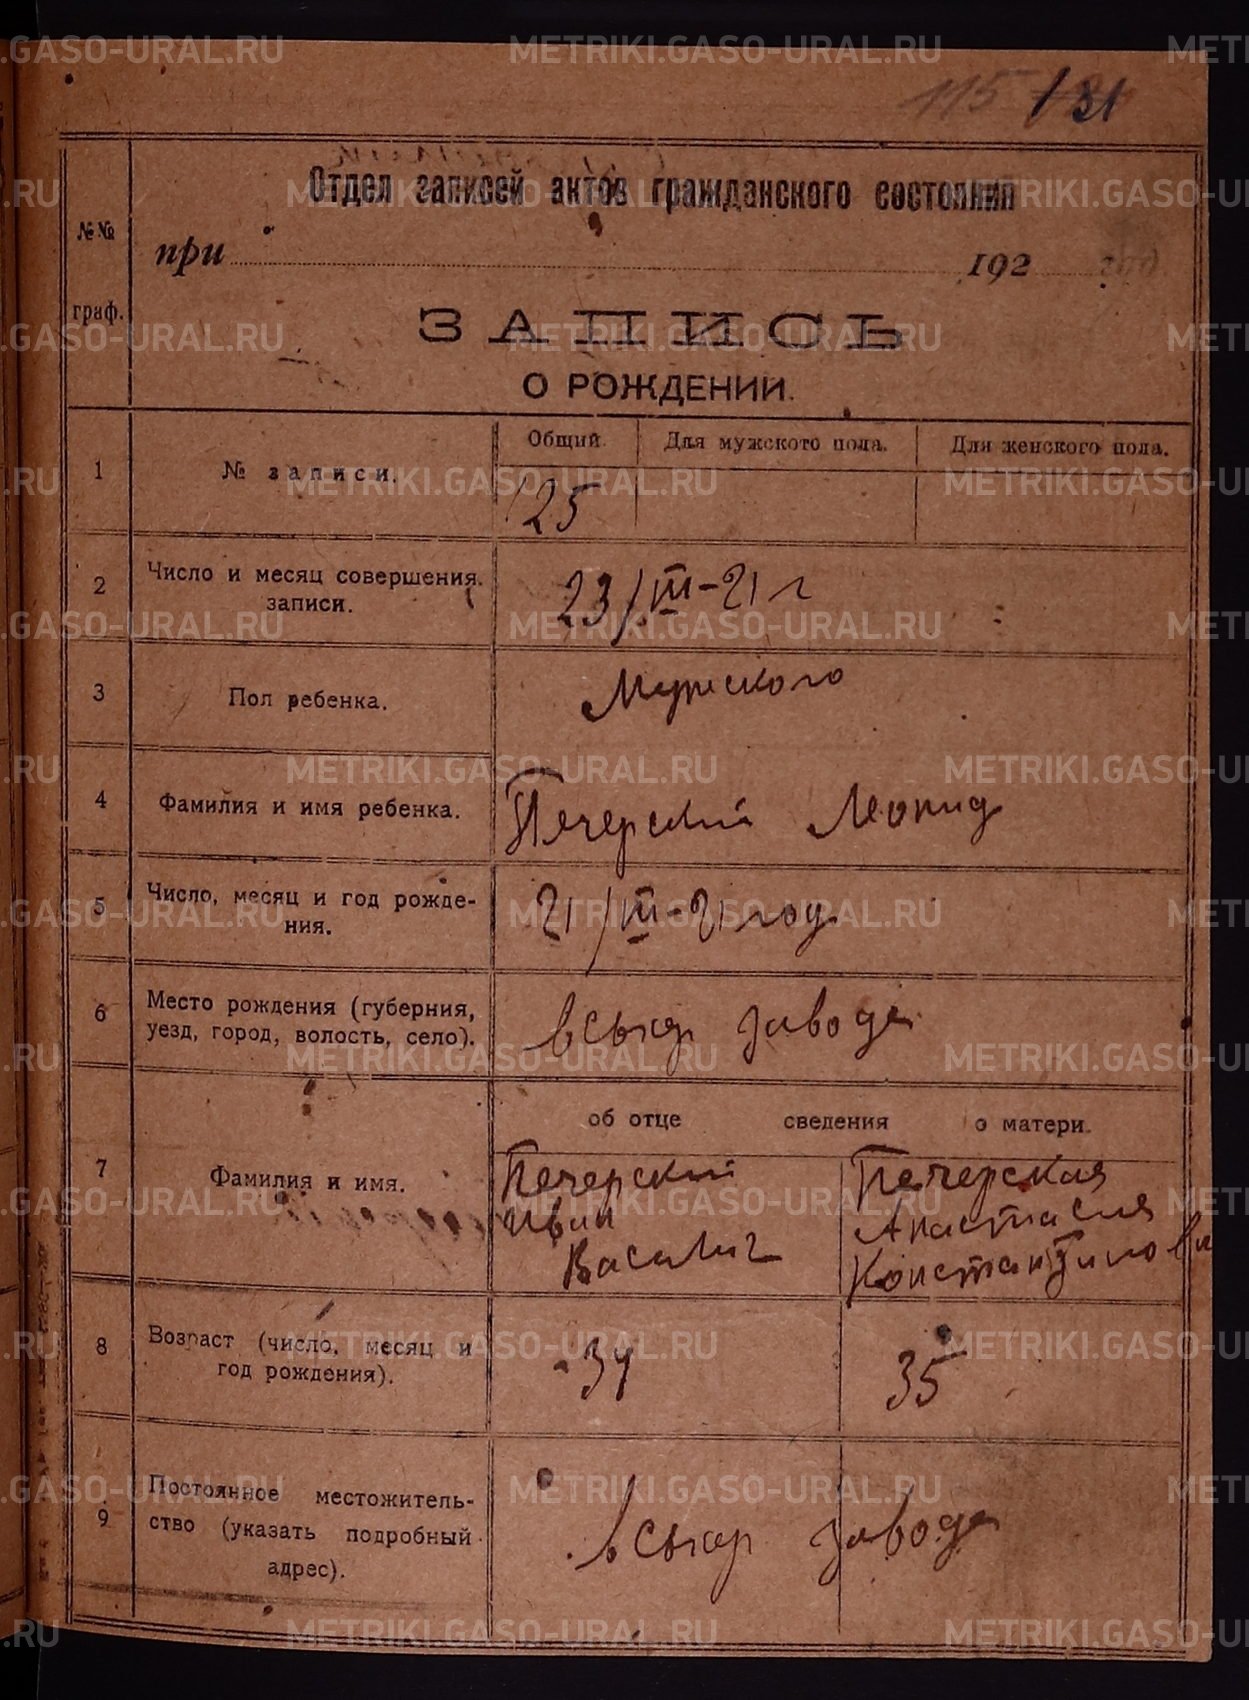 115 / 31
Отдел записей актов гражданского состояния
№№
при 192 год
граф.
ЗАПИСЬ
О РОЖДЕНИИ.
Общий. Для мужского пола. Для женского пола.
1 № записи. 125
2 Число и месяц совершения.
записи.
23/III-21 г
3 Пол ребенка. Мужского
4 Фамилия и имя ребенка. Печерский Леонид
5 Число, месяц и год рожде-
ния.
21/III-21 год
6 Место рождения (губерния,
уезд, город, волость, село).
в Сысер заводе
об отце сведения о матери.
7 Фамилия и имя.
Печерский Печерская
Иван Анастасия
Васильич Константинов
8 Возраст (число, месяц и
год рождения).
34 35
9 Постоянное местожитель-
ство (указать подробный
адрес).
в Сысер заводе
METRIKI.GASO-URAL.RU